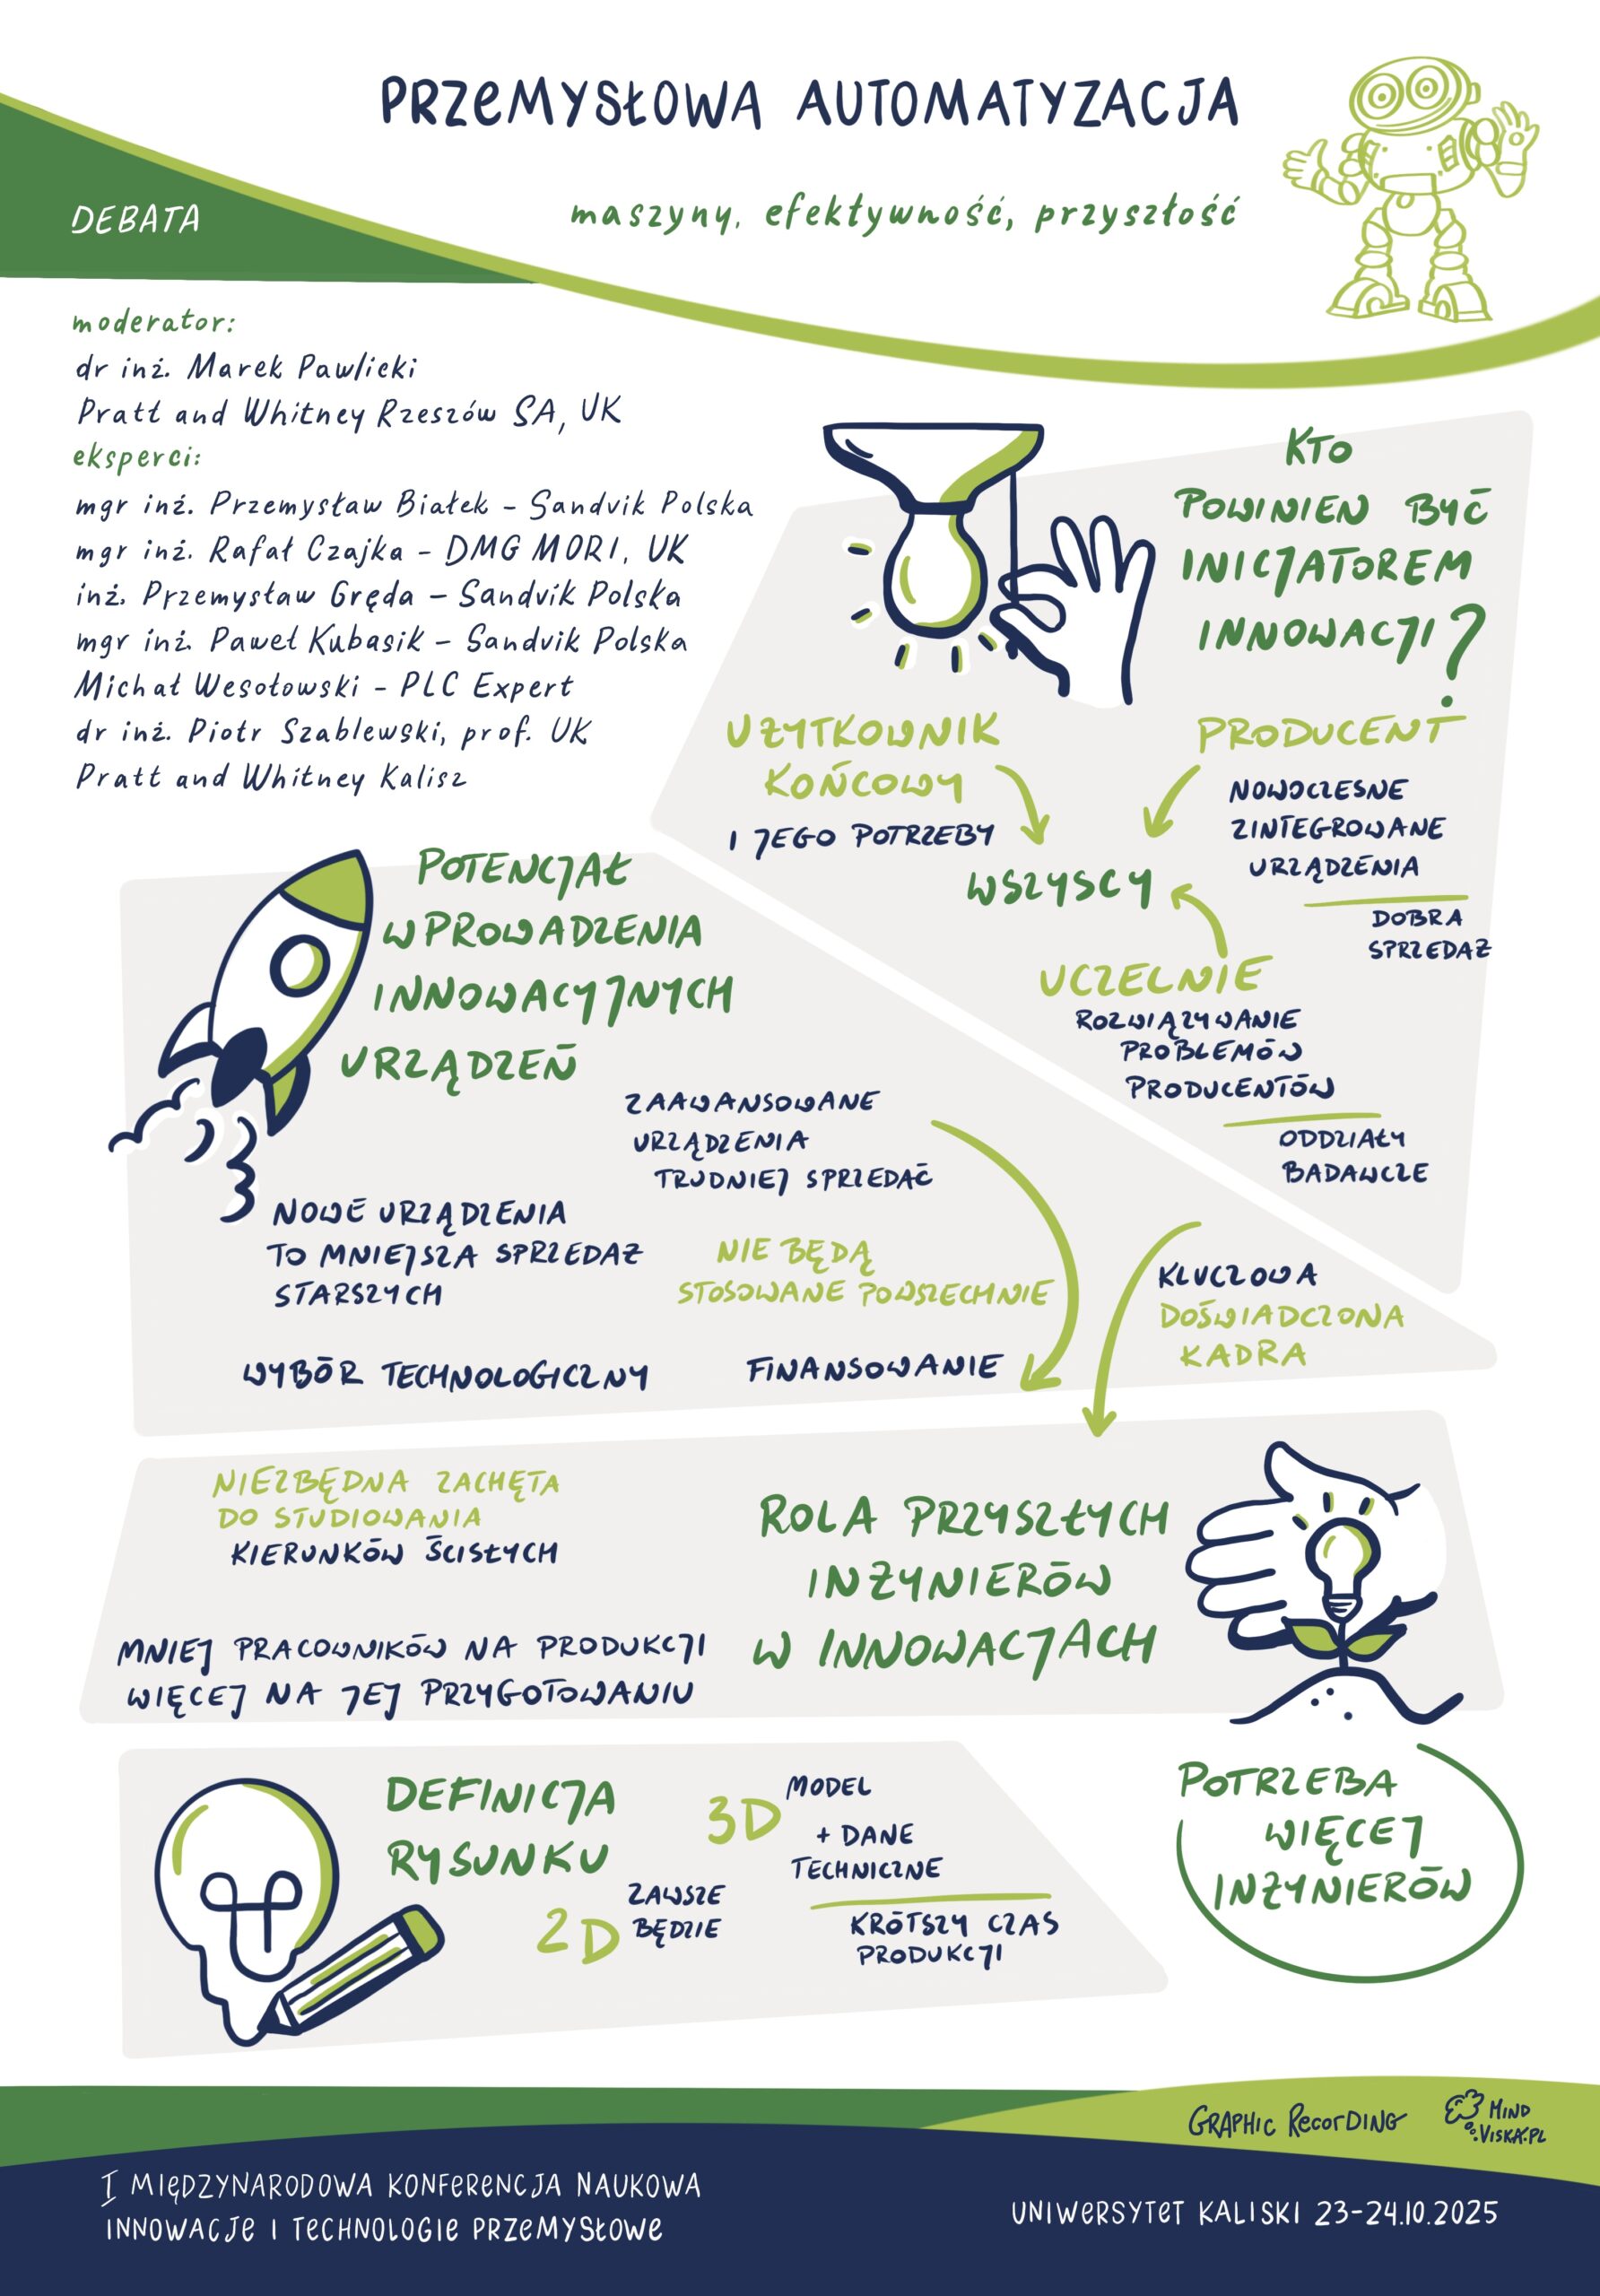 PRZEMYSŁOWA AUTOMATYZACJA
maszyny, efektywność, przyszłość
DEBATA
moderator:
dr inż. Marek Pawlicki
Pratt and Whitney Rzeszów SA, UK
eksperci:
mgr inż. Przemysław Białek – Sandvik Polska
mgr inż. Rafał Czajka – DMG MORI, UK
inż. Przemysław Gręda – Sandvik Polska
mgr inż. Paweł Kubasik – Sandvik Polska
Michał Wesołowski – PLC Expert
dr inż. Piotr Szablewski, prof. UK
Pratt and Whitney Kalisz
KTO
POWINIEN BYĆ
INICJATOREM
INNOWACJI?
UŻYTKOWNIK
KOŃCOWY
I JEGO POTRZEBY
PRODUCENT
NOWOCZESNE
ZINTEGROWANE
URZĄDZENIA
DOBRA
SPRZEDAŻ
WSZYSCY
UCZELNIE
ROZWIĄZYWANIE
PROBLEMÓW
PRODUCENTÓW
ODDZIAŁY
BADAWCZE
POTENCJAŁ
WPROWADZENIA
INNOWACYJNYCH
URZĄDZEŃ
ZAAWANSOWANE
URZĄDZENIA
TRUDNIEJ SPRZEDAĆ
NOWE URZĄDZENIA
TO MNIEJSZA SPRZEDAŻ
STARSZYCH
NIE BĘDĄ
STOSOWANE POWSZECHNIE
WYBÓR TECHNOLOGICZNY
FINANSOWANIE
KLUCZOWA
DOŚWIADCZONA
KADRA
NIEZBĘDNA ZACHĘTA
DO STUDIOWANIA
KIERUNKÓW ŚCISŁYCH
MNIEJ PRACOWNIKÓW NA PRODUKCJI
WIĘCEJ NA JEJ PRZYGOTOWANIU
ROLA PRZYSZŁYCH
INŻYNIERÓW
W INNOWACJACH
DEFINICJA
RYSUNKU
3D MODEL
+ DANE
TECHNICZNE
KRÓTSZY CZAS
PRODUKCJI
2D ZAWSZE
BĘDZIE
POTRZEBA
WIĘCEJ
INŻYNIERÓW
GRAPHIC RECORDING
MIND
VISKA.PL
I MIĘDZYNARODOWA KONFERENCJA NAUKOWA
INNOWACJE I TECHNOLOGIE PRZEMYSŁOWE
UNIWERSYTET KALISKI 23-24.10.2025